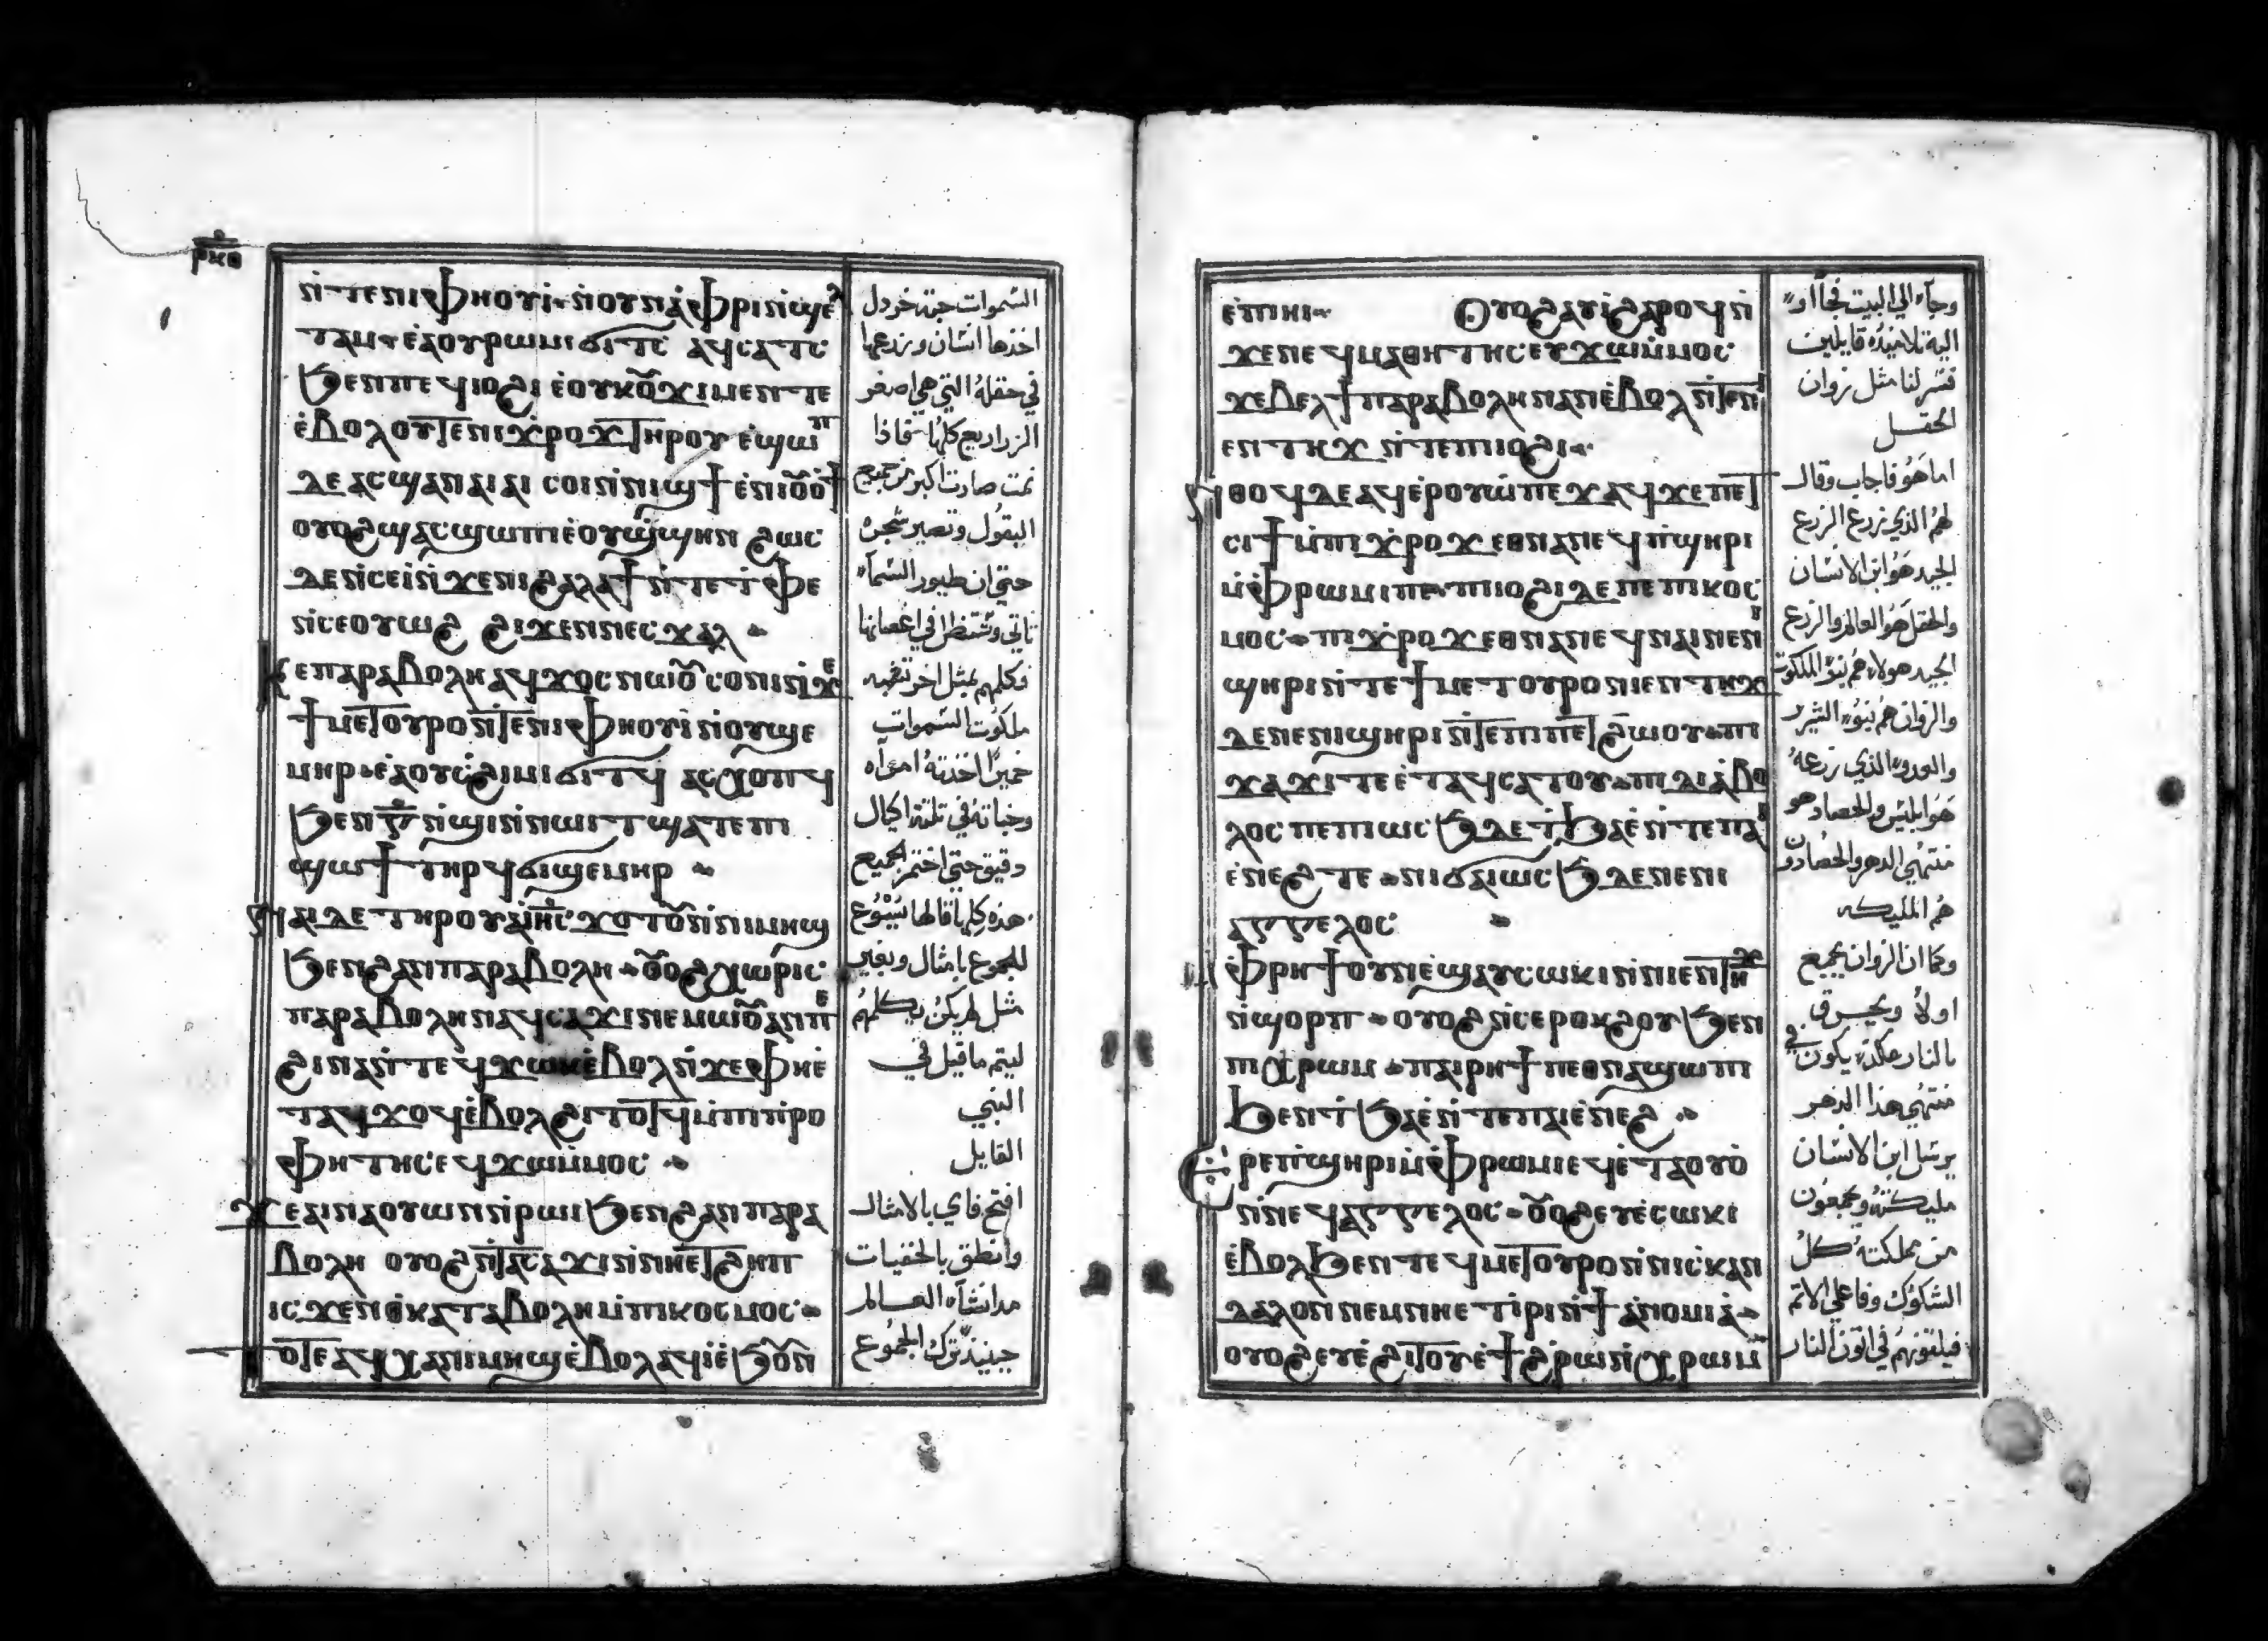 ⲣⲕⲑ
ⲛ̀ⲧⲉⲛⲓⲫⲏⲟⲩⲓ̀ ⲛ̀ⲟⲩⲛⲁ̀ⲫⲣⲓ ⲛ̀ϣⲉⲗ
ⲧⲁⲙ ⲉ̀ⲁⲟⲩⲣⲱⲙⲓ ϭⲓⲧⲥ ⲁϥⲥⲁⲧⲥ
ϧⲉⲛⲡⲉϥⲓⲟϩⲓ ⲉ̀ⲟⲩⲕⲟⲩϫⲓ ⲙⲉⲛⲧⲉ
ⲉ̀ⲃⲟⲗ ⲟⲩⲧⲉ ⲛⲓϫ̀ⲣⲟϫ ⲧⲏⲣⲟⲩ ⲉ̀ϣⲱⲡ
ⲇⲉ ⲁⲥϣⲁⲛⲁⲓⲁⲓ ⲥⲟⲓ ⲛ̀ⲛⲓϣϯ ⲉ̀ⲛⲓⲟⲩⲟϯ
ⲟⲩⲟϩ ϣⲁⲥϣⲱⲡⲓ ⲉ̀ⲟⲩϣ̀ϣⲏⲛ ϩⲱⲥ
ⲇⲉ ⲛ̀ⲥⲉⲓ̀ ⲛ̀ϫⲉⲛⲓϩⲁⲗⲁϯ ⲛ̀ⲧⲉⲧ̀ⲫⲉ
ⲛ̀ⲥⲉⲟⲩⲱϩ ϩⲓϫⲉⲛⲛⲉⲥϫⲁⲗ
ⲕⲉⲡⲁⲣⲁⲃⲟⲗⲏ ⲁϥϫⲟⲥ ⲛⲱⲟⲩ ⲥⲟⲛⲓ ⲛ̀ϫⲉ
ϯⲙⲉⲧⲟⲩⲣⲟ ⲛ̀ⲧⲉⲛⲓⲫⲏⲟⲩⲓ̀ ⲛ̀ⲟⲩϣⲉ
ⲙⲏⲣ ⲉ̀ⲁⲟⲩⲥ̀ϩⲓⲙⲓ ϭⲓⲧϥ ⲁⲥⲭⲟⲡϥ
ϧⲉⲛ ⲅ̅ ⲛ̀ϣⲓ ⲛ̀ⲛⲱⲓⲧ ϣⲁⲧⲉⲡⲓ
ⲟⲩⲱϯ ⲧⲏⲣϥ ϭⲓϣⲉⲙⲏⲣ
ⲛⲁⲓ ⲇⲉ ⲧⲏⲣⲟⲩ ⲁ̀ⲓⲏ̅ⲥ̅ ϫⲟⲧⲟⲩ ⲛ̀ⲛⲓⲙⲏϣ
ϧⲉⲛϩⲁⲛⲡⲁⲣⲁⲃⲟⲗⲏ ⲟⲩⲟϩ ⲭⲱⲣⲓⲥ
ⲡⲁⲣⲁⲃⲟⲗⲏ ⲛⲁϥⲥⲁϫⲓ ⲛⲉⲙⲱⲟⲩ ⲁⲛⲡⲉ
ϩⲓⲛⲁ ⲛ̀ⲧⲉϥϫⲱⲕ ⲉ̀ⲃⲟⲗ ⲛ̀ϫⲉⲫⲏ ⲉ̀
ⲧⲁϥϫⲟϥ ⲉ̀ⲃⲟⲗϩⲓⲧⲟⲧϥ ⲙ̀ⲡⲓⲡ̀ⲣⲟ
ⲫⲏⲧⲏⲥ ⲉϥϫⲱⲙ̀ⲙⲟⲥ
ϫⲉ ⲁⲓⲛⲁⲟⲩⲱⲛ ⲛ̀ⲣⲱⲓ ϧⲉⲛϩⲁⲛⲡⲁⲣⲁ
ⲃⲟⲗⲏ ⲟⲩⲟϩ ⲛ̀ⲧⲁⲥⲁϫⲓ ⲛ̀ⲛⲏⲉⲧϩⲏⲡ
ⲓⲥϫⲉⲛ ⲑ̀ⲕⲁⲧⲁⲃⲟⲗⲏ ⲙ̀ⲡⲓⲕⲟⲥⲙⲟⲥ
ⲧⲟⲧⲉ ⲁϥⲭⲁⲛⲓⲙⲏϣ ⲉ̀ⲃⲟⲗ ⲁϥⲓ̀ ⲉ̀ϧⲟⲩⲛ
السموات حبة خردل
اخدها انسان وزرعها
في حقله التي هي اصغر
الزراريع كلها فاذا
نمت صارت اكبر من جميع
البقول وتصير شجره
حتي ان طيور السماء
تاتي وتستظل في اغصانها
فكلمهم بمثل اخر تشبه
ملكوت السموات
خميرًا اخدته امراه
وخباته في تلتة اكيال
دقيق حتي اختمر الجميع
هذه كلها قالها يسوع
للجموع بامثال وبغير
مثل لم يكن يكلمهم
ليتم ما قيل في
النبي
القايل
افتح فاي بالامثال
وانطق بالخفيات
مد انشاه العالم
حينيذ ترك الجموع
ⲉ̀ⲡⲓⲏⲓ ⲟⲩⲟϩ ⲁⲩⲓ̀ ϩⲁⲣⲟϥ ⲛ̀
ϫⲉⲛⲉϥⲙⲁⲑⲏⲧⲏⲥ ⲉⲩϫⲱⲙ̀ⲙⲟⲥ
ϫⲉ ⲃⲉⲗ ϯⲡⲁⲣⲁⲃⲟⲗⲏ ⲛⲁⲛ ⲉ̀ⲃⲟⲗ ⲛ̀ⲧⲉⲛⲓ
ⲉⲛⲧⲏϫ ⲛ̀ⲧⲉⲡⲓⲓⲟϩⲓ
ⲛ̀ⲑⲟϥ ⲇⲉ ⲁϥⲉ̀ⲣⲟⲩⲱ̀ ⲡⲉϫⲁϥ ϫⲉ ⲡⲉⲧ
ⲥⲓϯ ⲙ̀ⲡⲓϫ̀ⲣⲟϫ ⲉⲑⲛⲁⲛⲉϥ ⲡ̀ϣⲏⲣⲓ
ⲙ̀ⲫⲣⲱⲙⲓ ⲡⲉ ⲡⲓⲓⲟϩⲓ ⲇⲉ ⲡⲉ ⲡⲓⲕⲟⲥ
ⲙⲟⲥ ⲡⲓϫ̀ⲣⲟϫ ⲉⲑⲛⲁⲛⲉϥ ⲛⲁⲓ ⲛⲉ ⲛⲓ
ϣⲏⲣⲓ ⲛ̀ⲧⲉϯⲙⲉⲧⲟⲩⲣⲟ ⲛⲓⲉⲛⲧⲏϫ
ⲇⲉ ⲛⲉ ⲛⲓϣⲏⲣⲓ ⲛ̀ⲧⲉⲡⲓⲡⲉⲧϩⲱⲟⲩ ⲡⲓ
ϫⲁϫⲓ ⲧⲉ ⲉ̀ⲧⲁϥⲥⲁⲧⲟⲩ ⲡⲓⲇⲓⲁ̀ⲃⲟ
ⲗⲟⲥ ⲡⲉ ⲡⲓⲱⲥϧ ⲇⲉ ⲧ̀ϧⲁⲉ̀ ⲛ̀ⲧⲉⲡⲁⲓ
ⲉ̀ⲛⲉϩ ⲧⲉ ⲛⲓϭⲁⲓⲱⲥϧ ⲇⲉ ⲛⲉ ⲛⲓ
ⲁⲅⲅⲉⲗⲟⲥ
ⲙ̀ⲫⲣⲏϯ ⲟⲩⲛ ⲉ̀ϣⲁⲩⲥⲱⲕⲓ ⲛ̀ⲛⲓⲉⲛⲧⲏϫ
ⲛ̀ϣⲟⲣⲡ ⲟⲩⲟϩ ⲛ̀ⲥⲉⲣⲟⲕϩⲟⲩ ϧⲉⲛ
ⲡⲓⲭⲣⲱⲙ ⲡⲁⲓⲣⲏϯ ⲡⲉⲑⲛⲁϣⲱⲡⲓ
ϧⲉⲛⲧ̀ϧⲁⲉ̀ ⲛ̀ⲧⲉⲡⲁⲓⲉ̀ⲛⲉϩ
ⲉⲣⲉⲡϣⲏⲣⲓ ⲙ̀ⲫⲣⲱⲙⲓ ⲉϥⲉ̀ⲧⲁⲟⲩⲟ̀
ⲛ̀ⲛⲉϥⲁⲅⲅⲉⲗⲟⲥ ⲟⲩⲟϩ ⲉⲩⲉ̀ⲥⲱⲕⲓ
ⲉ̀ⲃⲟⲗϧⲉⲛⲧⲉϥⲙⲉⲧⲟⲩⲣⲟ ⲛ̀ⲛⲓⲥ̀ⲕⲁⲛ
ⲇⲁⲗⲟⲛ ⲛⲉⲙ ⲛⲏⲉⲧⲓ̀ⲣⲓ ⲛ̀ϯⲁ̀ⲛⲟⲙⲓⲁ̀
ⲟⲩⲟϩ ⲉⲩⲉ̀ϩⲓⲧⲟⲩ ⲉ̀ϯϩⲣⲱ ⲛ̀ⲭⲣⲱⲙ
وجاء الي البيت فجاءوا
اليه تلاميده قايلين
فسر لنا مثل زوان
الحقل
اما هو فاجاب وقال
لهم الذي زرع الزرع
الجيد هو ابن الانسان
والحقل هو العالم والزرع
الجيد هولاء هم بنو الملكوت
والزوان هم بنوء الشرير
والعدوء الذي زرعه
هو ابليس والحصاد هو
منتهي الدهر والحصادون
هم المليكه
وكما ان الزوان يجمع
اولاً ويحرق
بالنار هكذا يكون في
منتهي هذا الدهر
يرسل ابن الانسان
مليكته ويجمعون
من مملكته كل
الشكوك وفاعلي الاتم
فيلقونهم في اتون النار